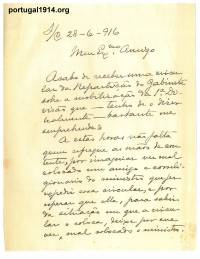 portugal1914.org
S/C 28-6-916
Meu Ex.mo Amigo
Acabo de receber uma circu-
lar da Repartição do Gabinete
sobre a mobilização da 1.ª Di-
visão que — tenho de o dizer
lealmente — bastante me
surprehendeu.
A estas horas não falta
quem esfregue as mãos de con-
tente, por imaginar ver mal
colocado um amigo e correli-
gionario do ministro que
expediu essa circular, e por
esperar que elle, para sahir
da situação em que a circu-
lar o coloca, deixe por sua
vez, mal colocado o ministro.